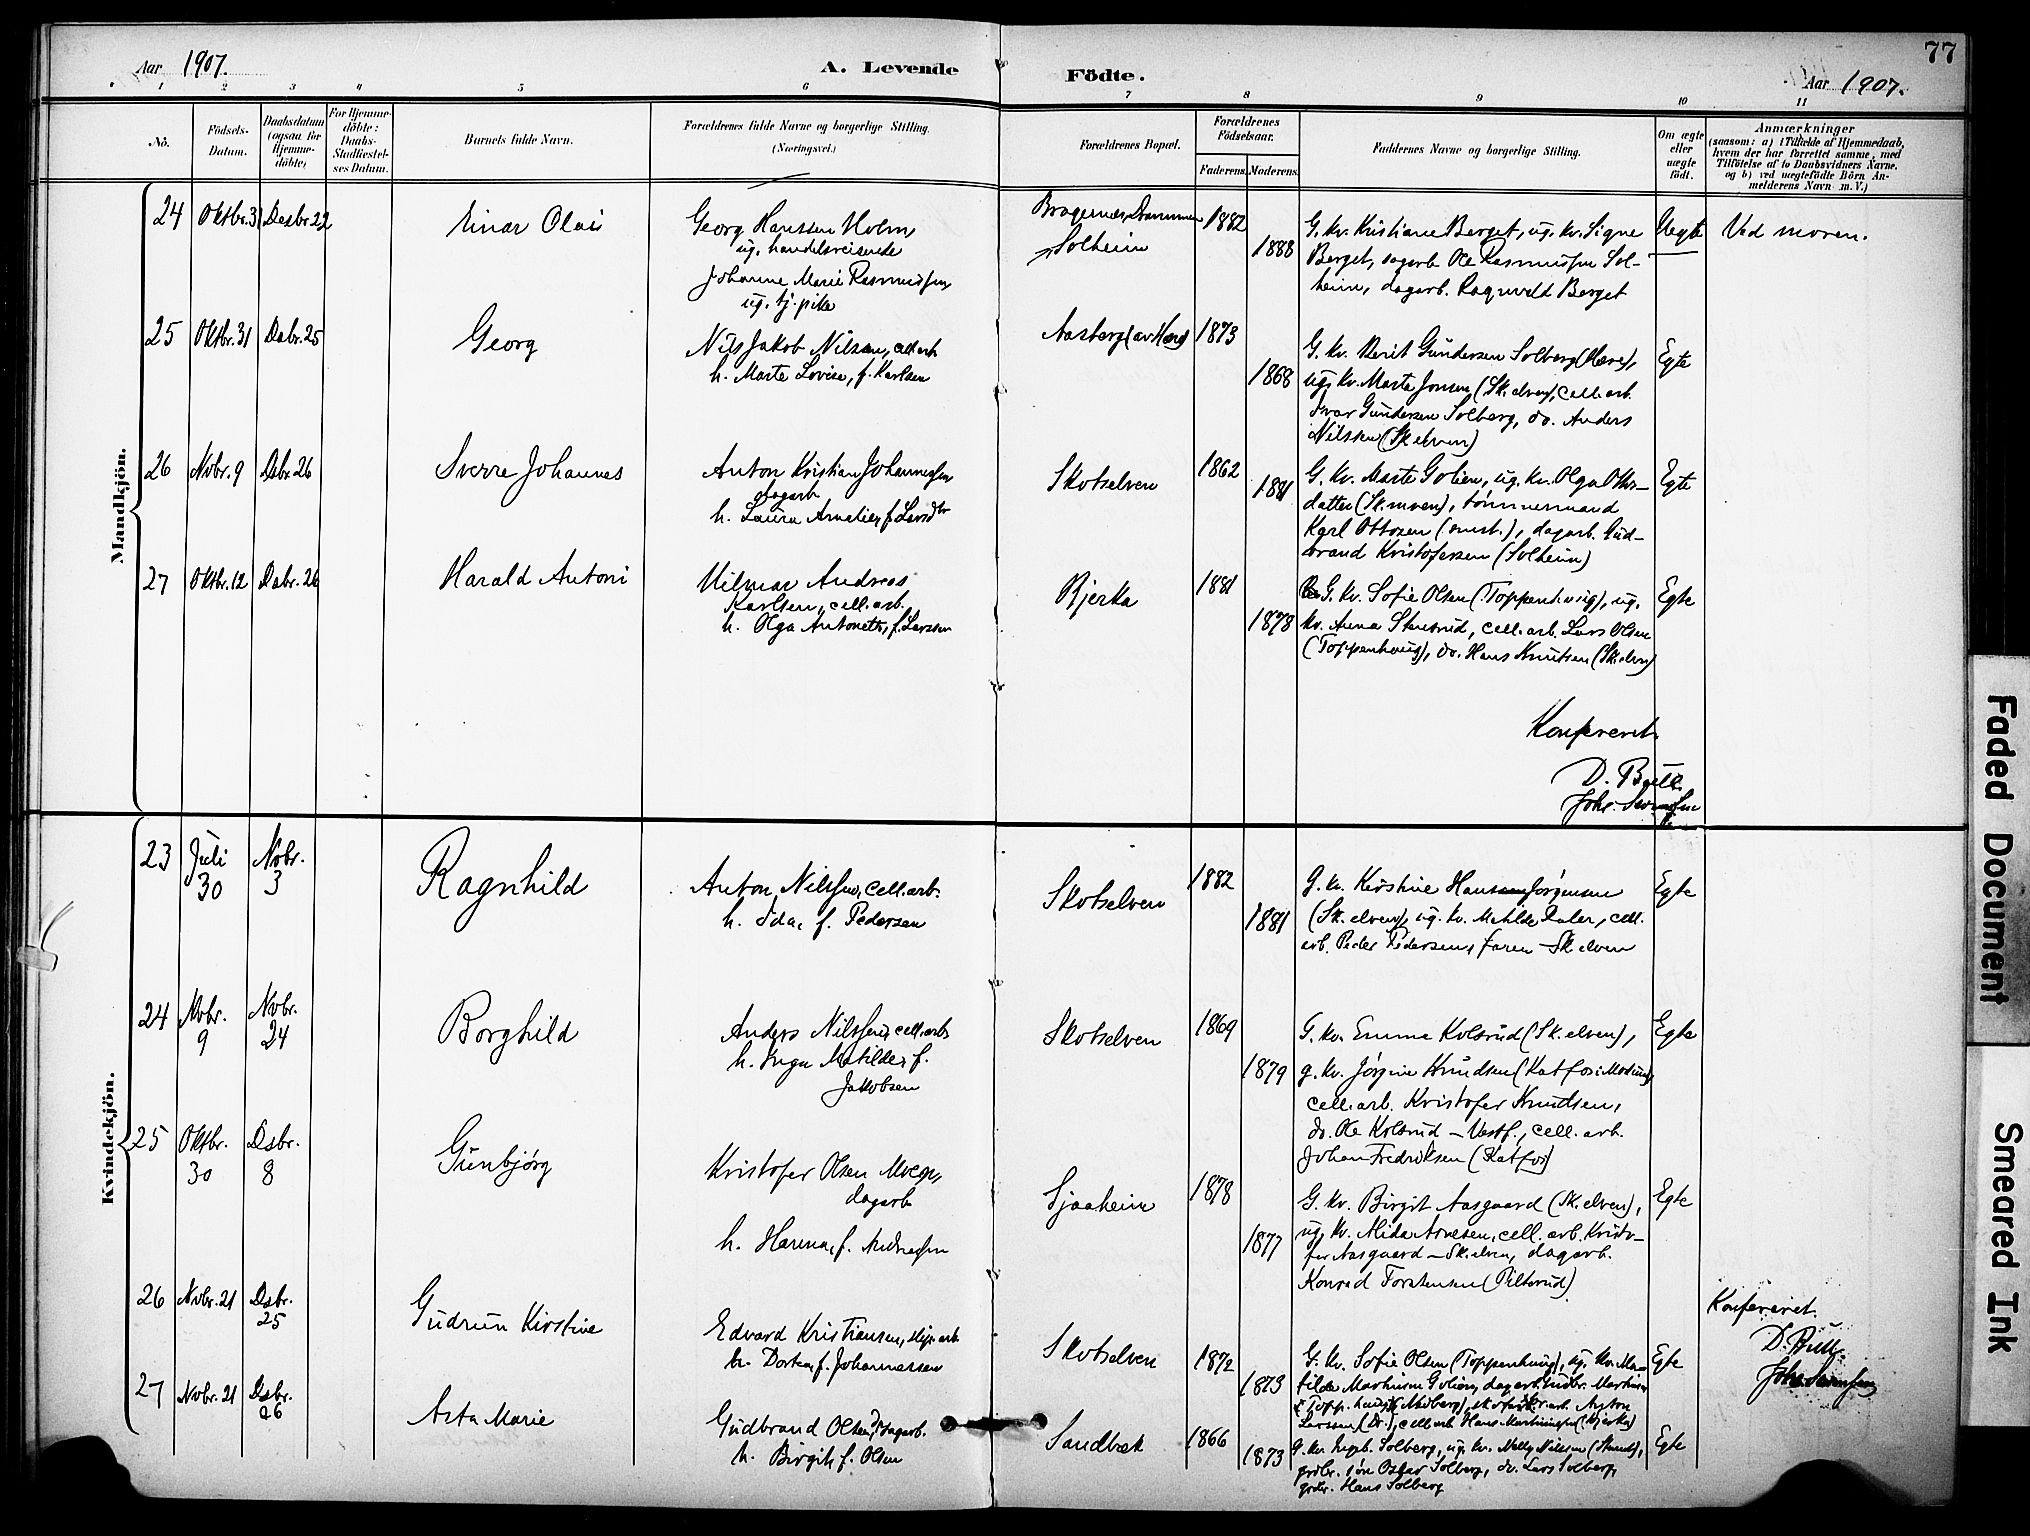 77
Aar 1907.
A. Levende
Födte.
Aar 1907.
1 2 3 4 5 6 7 8 9 10 11
No.
Födsels-
Datum.
Daabsdatum
(ogsaa for
Hjemme-
döbte)
For Hjemme-
döbte:
Daabs-
Stadfæstel-
ses Datum.
Barnets fulde Navn.
Forældrenes fulde Navne og borgerlige Stilling.
(Næringsvei.)
Forældrenes Bopæl.
Forældrenes
Födselsaar.
Faderens.
Moderens.
Faddernes Navne og borgerlige Stilling.
Om ægte
eller
uægte
födt.
Anmærkninger
(saasom: a) i Tilfælde af Hjemmedaab,
hvem der har forrettet samme, med
Tilföielse af to Daabsvidners Navne,
og b) ved uægtefödte Börn An-
melderens Navn m. V.)
Mandkjön.
24
Oktbr. 31
Desbr. 22
Einar Olai
Georg Hanssen Holm,
ug. handelsreisende
Johanne Marie Rasmussen,
ug. tj. pike
Bragernes, Drammen
Solheim
1882
1888
G. kv. Kristiane Berget, ug. kv. Signe
Berget, dagarb. Ole Rasmussen Sol-
heim, dagarb. Ragnvald Berget
Uegte
Ved moren.
25
Oktbr. 31
Dsbr. 25
Georg
Nils Jakob Nilsen, cell. arb.
h. Marte Lovise, f. Karlsen
Aasberg
1873
1868
G. kv. Berit Gundersen Solberg
ug. kv. Marta Jonsen (Sk. elven), cell. arb.
Ivar Gundersen Solberg, do. Anders
Nilssen (Sk. elven)
Egte
26
Nvbr. 9
Dsbr. 26
Sverre Johannes
Anton Kristian Johannessen
dagarb.
h. Laura Amalie, f. Larsdtr
Skotselven
1862
1881
G. kv. Marte Golien, ug. kv. Olga
datter, tømmermand
Karl Ottosen, dagarb. Gud-
brand Kristofersen (Solheim)
Egte
27
Oktbr. 12
Dsbr. 26
Harald Antoni
Hilmar Andreas
Karlsen, cell. arb.
h. Olga Antonette, f. Larsen
Bjerka
1881
1878
G. kv. Sofie Olsen (Toppenhaug), ug.
kv. Anna Stensrud, cell. arb. Lars Olsen
(Toppenhaug), do. Hans Knutsen (Sk. elven)
Egte
Konfereret.
Kvindekjön.
23
Juli
30
Nvbr.
3
Ragnhild
Anton Nilssen, cell. arb.
h. Ida, f. Pedersen
Skotselven
1882
1881
G. kv. Kirstine Hansen Jørgensen
(Sk. elven), ug. kv. Matilde Daler, cell.
arb. Peder Pedersen, Faren – Sk. elven
Egte
24
Nvbr.
9
Nvbr.
24
Borghild
Anders Nilssen, cell. arb.
h. Inga Matilde, f.
Jakobsen
Skotselven
1869
1879
G. kv. Emma Kolsrud (Sk. elven),
g. kv. Jørgine Knudsen (Katfos i Modum),
cell. arb. Kristofer Knutsen,
do. Ole Kolsrud – Vestf., cell. arb.
Johan Fredriksen (Katfos)
Egte
25
Oktbr.
30
Dsbr.
8
Gunbjørg
Kristofer Olsen Moen,
dagarb.
h. Hanna, f. Andreassen
Sjaaheim
1878
1877
G. kv. Birgit Aasgaard (Sk. elven),
ug. kv. Alida Arnesen, cell. arb. Kristo-
fer Aasgaard – Sk. elven, dagarb.
Konrad Torstensen (Pilterud)
Egte
26
Nvbr. 21
Dsbr.
25
Gudrun Kirstine
Edvard Kristiansen, slip. arb.
h. Dortea, f. Johannessen
Skotselven
1872
1873
G. kv. Sofie Olsen (Toppenhaug), ug. kv. Ma-
tilde Golien, dagarb. Gudbr.
Anton
Larssen, cell. arb. Hans (Bjerka)
Egte
Konfereret.
27
Nvbr. 21
Dsbr.
26
Asta Marie
Gudbrand Olsen, dagarb.
h. Birgit, f. Olsen
Sandbæk
1866
1873
G. kv. Ingeb. Solberg, ug. kv. Nelly Nilsen
grdbr. søn Oskar Solberg, do. Lars Solberg,
grdbr. Hans Solberg
Egte
Faded Document
Smeared Ink